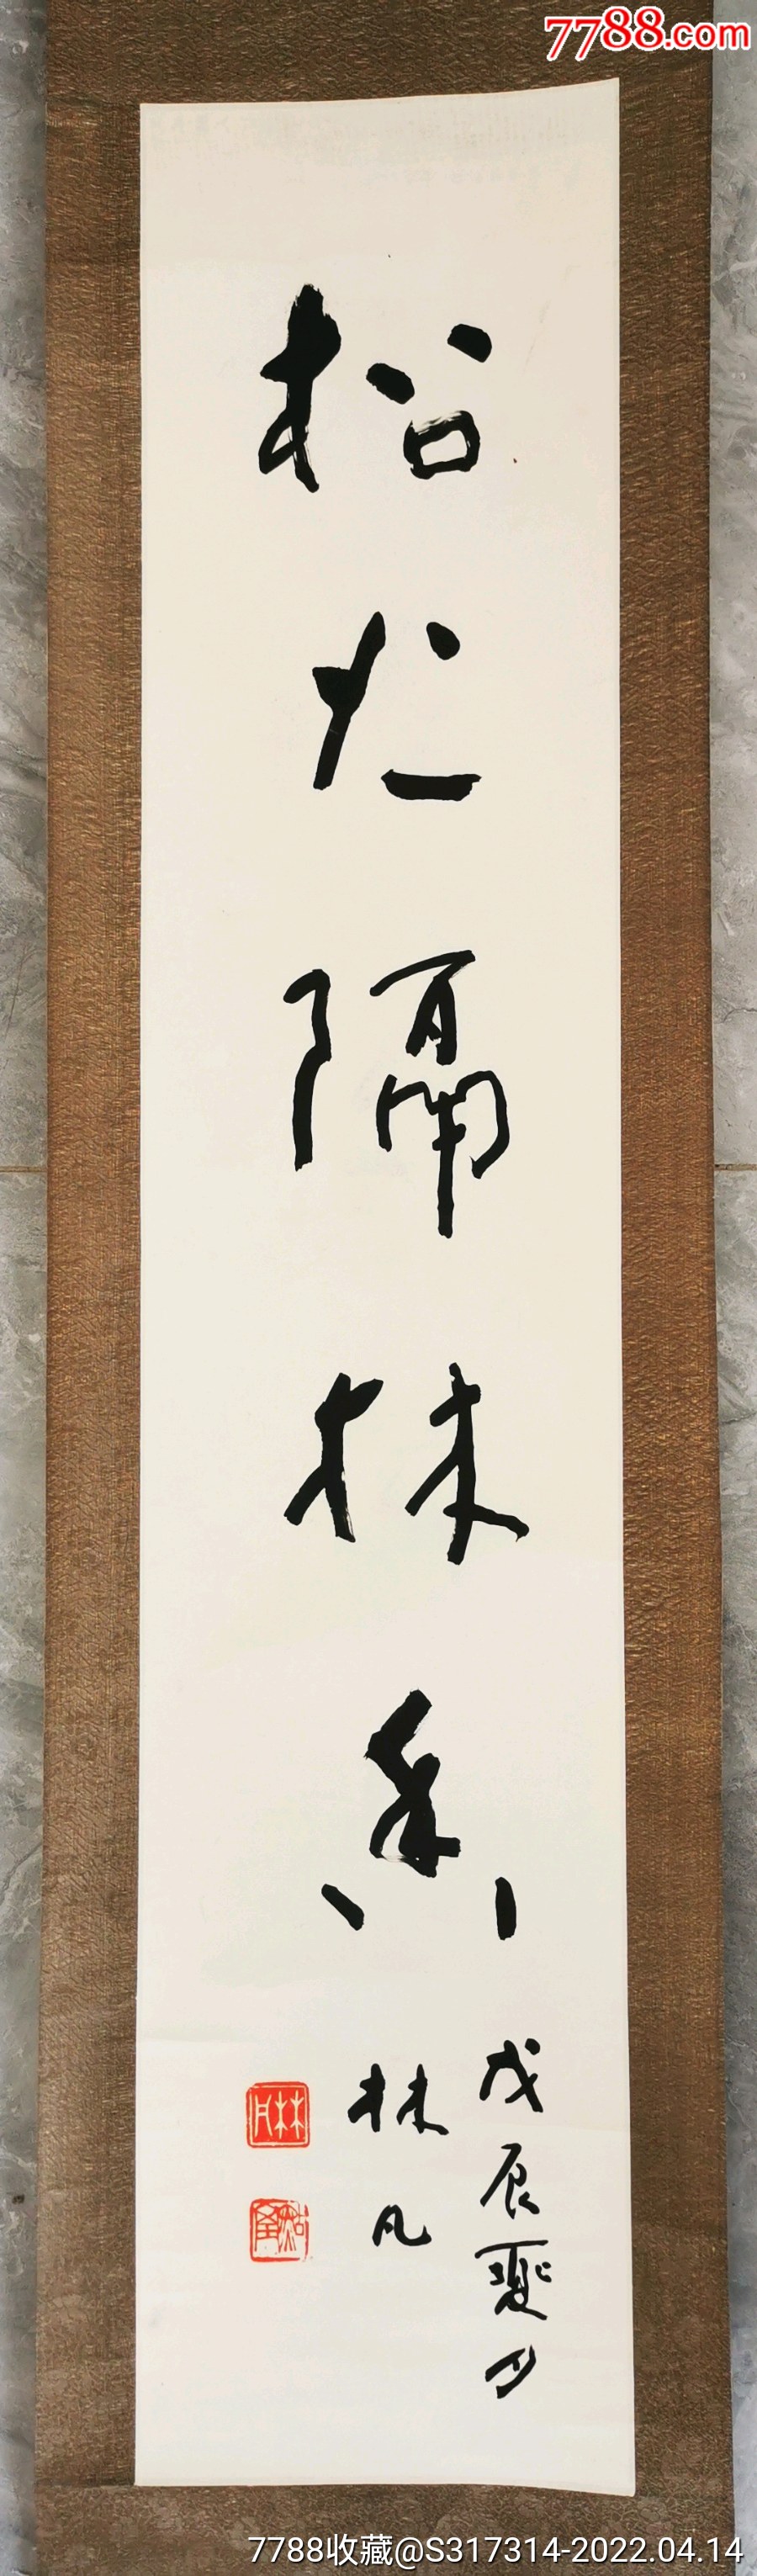 7788.com
松隔林香
戊辰夏月
林凡
林凡
7788收藏@S317314-2022.04.14